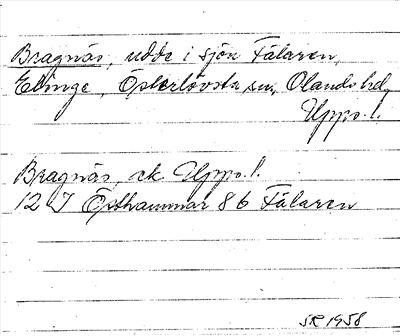 Bragnäs, udde i sjön Fälaren,
Ekinge, Österlövsta sn, Olands hd,
Upps. l.
Bragnäs, ek Upps. l.
12 I Östhammar 8 b Fälaren
SR 1958